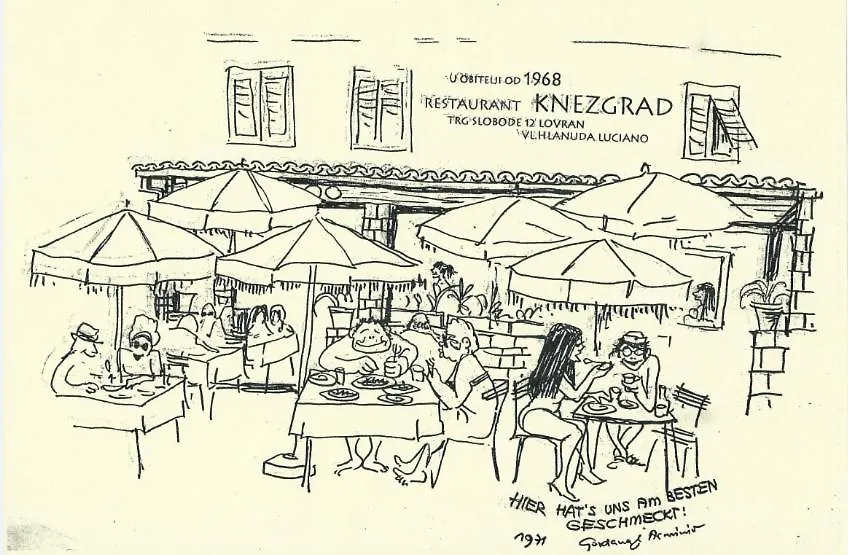 U OBITELJI OD 1968
RESTAURANT KNEZGRAD
TRG SLOBODE 12 LOVRAN
VL.HLANUDA LUCIANO
HIER HAT'S UNS AM BESTEN
GESCHMECKT!
1971